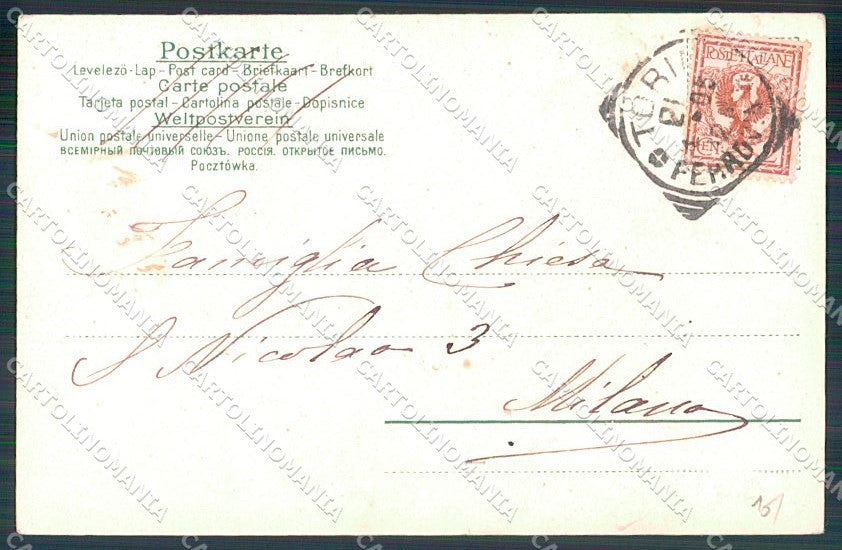 Postkarte
Levelező-Lap – Post card – Briefkaart – Brefkort
Carte postale
Tarjeta postal – Cartolina postale – Dopisnice
Weltpostverein
Union postale universelle – Unione postale universale
ВСЕМІРНЫЙ ПОЧТОВЫЙ СОЮЗЪ. РОССІЯ. ОТКРЫТОЕ ПИСЬМО.
Pocztówka.
POSTE ITALIANE
TORINO
FERROVIA
Famiglia Chiesa
S Nicolao 3
Milano
CARTOLINOMANIA